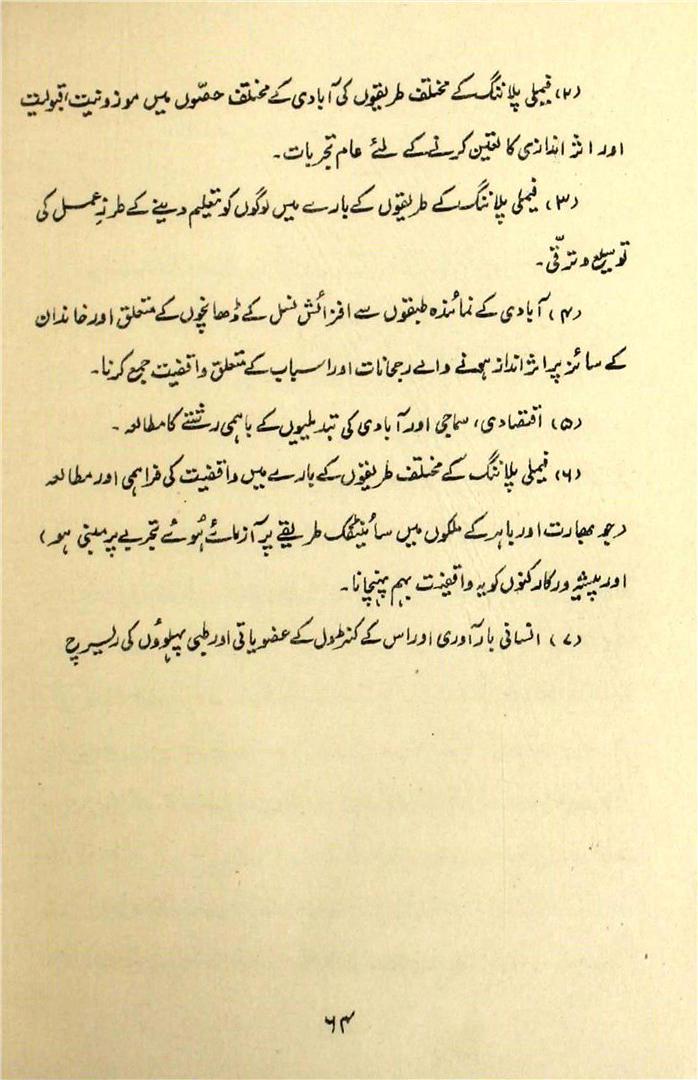 (۲) فیملی پلاننگ کے مختلف طریقوں کی آبادی کے مختلف حصّوں میں موزونیت، قبولیت
اور اثر اندازی کا تعین کرنے کے لئے عام تجربات۔
(۳) فیملی پلاننگ کے طریقوں کے بارے میں لوگوں کو تعلیم دینے کے طرزِ عمل کی
توسیع و ترقّی۔
(۴) آبادی کے نمائندہ طبقوں سے افزائش نسل کے ڈھانچوں کے متعلق اور خاندان
کے سائز پر اثر انداز ہونے والے رجحانات اور اسباب کے متعلق واقفیت جمع کرنا۔
(۵) اقتصادی، سماجی اور آبادی کی تبدیلیوں کے باہمی رشتے کا مطالعہ۔
(۶) فیملی پلاننگ کے مختلف طریقوں کے بارے میں واقفیت کی فراہمی اور مطالعہ
(جو بھارت اور باہر کے ملکوں میں سائینٹفک طریقے پر آزمائے ہُوئے تجربے پر مبنی ہو)
اور پیشہ ور کارکنوں کو یہ واقفیت بہم پہنچانا۔
(۷) انسانی بارآوری اور اس کے کنٹرول کے عضویاتی اور طبی پہلوؤں کی ریسرچ
۶۴